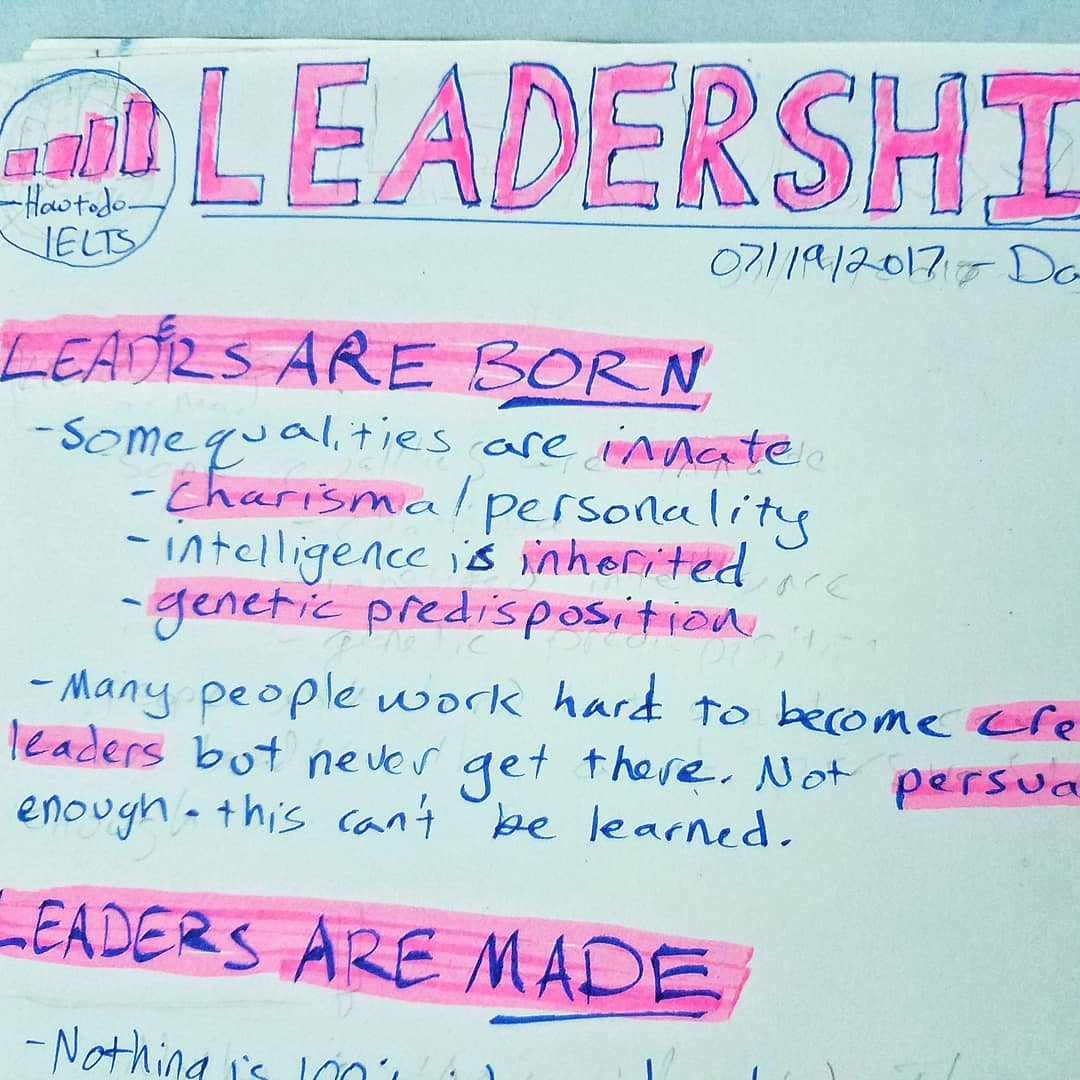 LEADERSHI
How to do
IELTS
07/19/2017 - Da
LEADERS ARE BORN
- some qualities are innate
- charisma / personality
- intelligence is inherited
- genetic predisposition
- Many people work hard to become cre
leaders but never get there. Not persua
enough. this can't be learned.
LEADERS ARE MADE
- Nothing is 100%